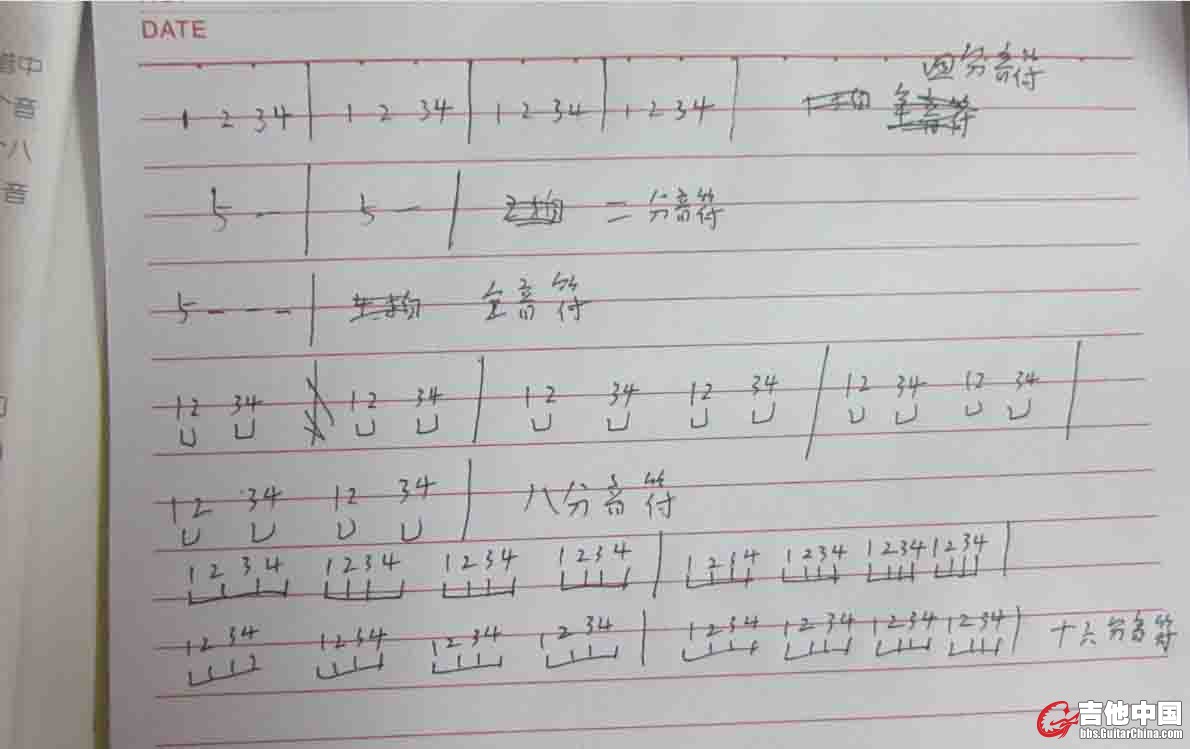 DATE
谱中
个音
个八
音
四分音符
1 2 3 4 | 1 2 3 4 | 1 2 3 4 | 1 2 3 4 | 全音符
5 — | 5 — | 二分音符
5 - - - | 全音符
12 34 12 34 | 12 34 12 34 | 12 34 12 34 |
12 34 12 34 | 八分音符
1234 1234 1234 1234 | 1234 1234 1234 1234 |
1234 1234 1234 1234 | 1234 1234 1234 1234 | 十六分音符
吉他中国
bbs.GuitarChina.com